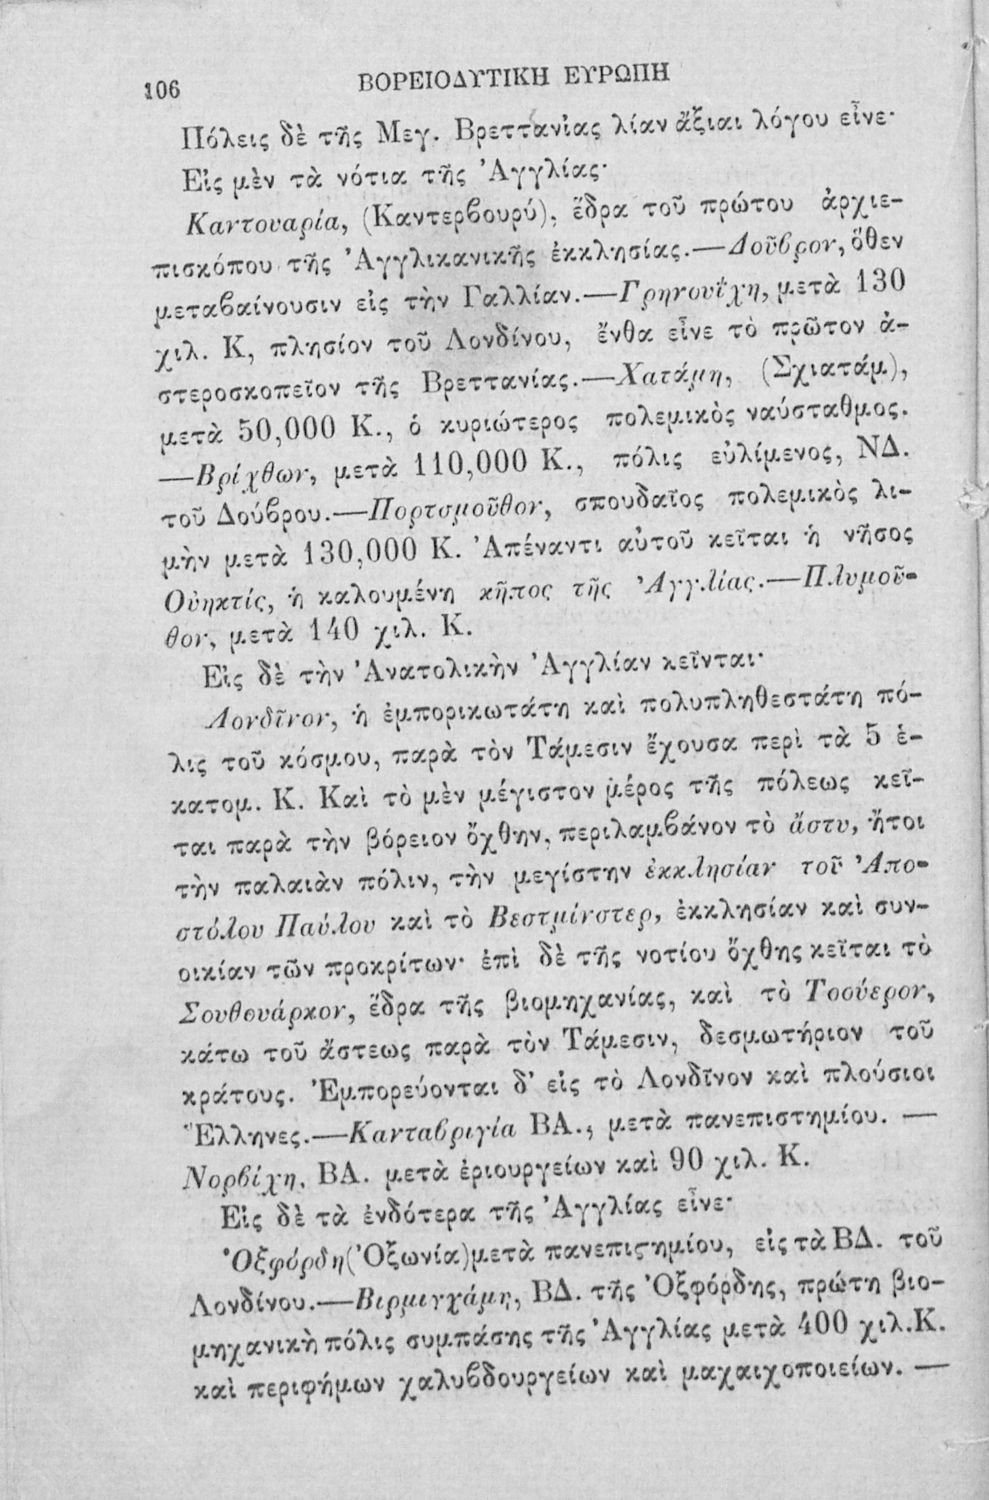 106
ΒΟΡΕΙΟΔΥΤΙΚΗ ΕΥΡΩΠΗ
Πόλεις δὲ τῆς Μεγ. Βρεττανίας λίαν ἄξιαι λόγου εἶνε·
Εἰς μὲν τὰ νότια τῆς Ἀγγλίας·
Καντουαρία, (Καντερβουρύ), ἕδρα τοῦ πρώτου ἀρχιε-
πισκόπου τῆς Ἀγγλικανικῆς ἐκκλησίας.—Δοῦβρον, ὅθεν
μεταβαίνουσιν εἰς τὴν Γαλλίαν.—Γρηνουΐχη, μετὰ 130
χιλ. Κ, πλησίον τοῦ Λονδίνου, ἔνθα εἶνε τὸ πρῶτον ἀ-
στεροσκοπεῖον τῆς Βρεττανίας.—Χατάμη, (Σχιατάμ),
μετὰ 50,000 Κ., ὁ κυριώτερος πολεμικὸς ναύσταθμος.
—Βρίχθων, μετὰ 110,000 Κ., πόλις εὐλίμενος, ΝΔ.
τοῦ Δούβρου.—Πορτσμοῦθον, σπουδαῖος πολεμικὸς λι-
μὴν μετὰ 130,000 Κ. Ἀπέναντι αὐτοῦ κεῖται ἡ νῆσος
Οὐηκτίς, ἡ καλουμένη κῆπος τῆς Ἀγγλίας.—Πλυμοῦ-
θον, μετὰ 140 χιλ. Κ.
Εἰς δὲ τὴν Ἀνατολικὴν Ἀγγλίαν κεῖνται·
Λονδῖνον, ἡ ἐμπορικωτάτη καὶ πολυπληθεστάτη πό-
λις τοῦ κόσμου, παρὰ τὸν Τάμεσιν ἔχουσα περὶ τὰ 5 ἑ-
κατομ. Κ. Καὶ τὸ μὲν μέγιστον μέρος τῆς πόλεως κεῖ-
ται παρὰ τὴν βόρειον ὄχθην, περιλαμβάνον τὸ ἄστυ, ἤτοι
τὴν παλαιὰν πόλιν, τὴν μεγίστην ἐκκλησίαν τοῦ Ἀπο-
στόλου Παύλου καὶ τὸ Βεστμίνστερ, ἐκκλησίαν καὶ συν-
οικίαν τῶν προκρίτων· ἐπὶ δὲ τῆς νοτίου ὄχθης κεῖται τὸ
Σουθουάρκον, ἕδρα τῆς βιομηχανίας, καὶ τὸ Τοούερον,
κάτω τοῦ ἄστεως παρὰ τὸν Τάμεσιν, δεσμωτήριον τοῦ
κράτους. Ἐμπορεύονται δ' εἰς τὸ Λονδῖνον καὶ πλούσιοι
Ἕλληνες.—Κανταβριγία ΒΑ., μετὰ πανεπιστημίου. —
Νορβίχη, ΒΑ. μετὰ ἐριουργείων καὶ 90 χιλ. Κ.
Εἰς δὲ τὰ ἐνδότερα τῆς Ἀγγλίας εἶνε·
Ὀξφόρδη(Ὀξωνία)μετὰ πανεπιςημίου, εἰς τὰ ΒΔ. τοῦ
Λονδίνου.—Βιρμιγχάμη, ΒΔ. τῆς Ὀξφόρδης, πρώτη βιο-
μηχανικὴ πόλις συμπάσης τῆς Ἀγγλίας μετὰ 400 χιλ.Κ.
καὶ περιφήμων χαλυβδουργείων καὶ μαχαιχοποιείων. —